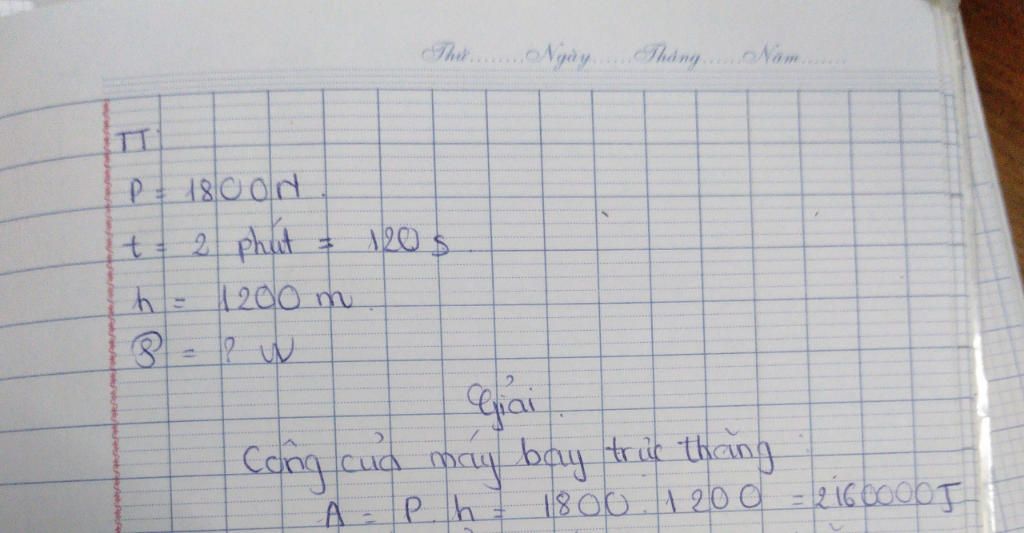 Thứ........Ngày......Tháng......Năm.......
TT
P = 1800N.
t = 2 phút = 120 s.
h = 1200 m.
P = ? W
Giải.
Công của máy bay trực thăng:
A = P. h = 1800. 1200 = 2160000J